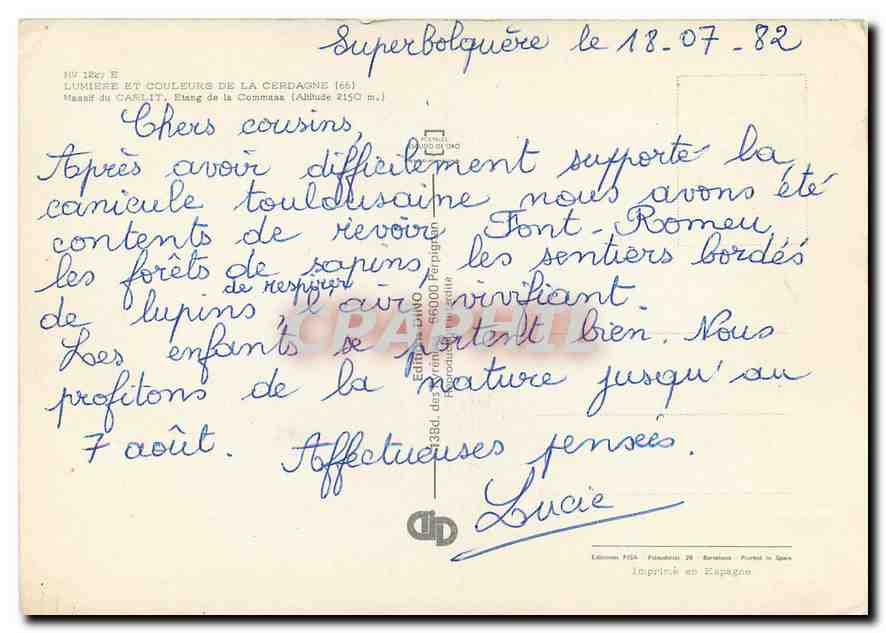 Superbolquère le 18-07-82
NV 1227 E
LUMIERE ET COULEURS DE LA CERDAGNE (66)
Massif du CARLIT. Etang de la Commasa (Altitude 2150 m.)
Chers cousins,
Après avoir difficilement supporté la
canicule toulousaine nous avons été
contents de revoir Font-Romeu,
les forêts de sapins, les sentiers bordés
de lupins, de respirer l'air vivifiant.
Les enfants se portent bien. Nous
profitons de la nature jusqu'au
7 août. Affectueuses pensées.
Lucie
Editions DINO
13Bd. des Pyrénées 66000 Perpignan
Reproduction interdite
CPARAMA
Imprimé en Espagne